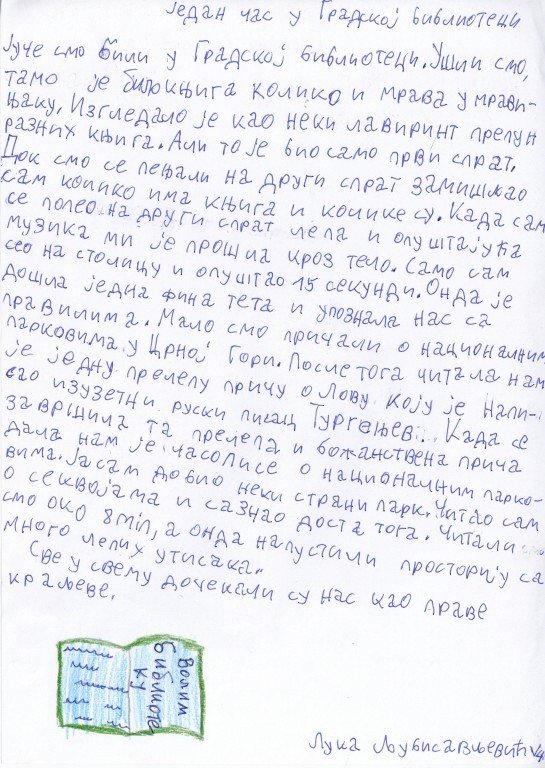 Један час у Градској библиотеци
Јуче смо били у Градској библиотеци. Ушли смо,
тамо је било књига колико и мрава у мрави-
њаку. Изгледало је као неки лавиринт препун
разних књига. Али то је био само први спрат.
Док смо се пењали на други спрат замишљао
сам колико има књига и колике су. Када сам
се попео на други спрат лепа и опуштајућа
музика ми је прошла кроз тело. Само сам
сео на столицу и опуштао 15 секунди. Онда је
дошла једна фина тета и упознала нас са
правилима. Мало смо причали о националним
парковима у Црној Гори. После тога читала нам
је једну прелепу причу о Лову коју је напи-
сао изузетни руски писац Тургењев. Када се
завршила та прелепа и божанствена прича
дала нам је часописе о националним парко-
вима. Ја сам добио неки страни парк. Читао сам
о секвојама и сазнао доста тога. Читали
смо око 8 min, а онда напустили просторију са
много лепих утисака.
Све у свему дочекали су нас као праве
краљеве.
Волим
библиоте
ку
Лука Љубисављевић V4